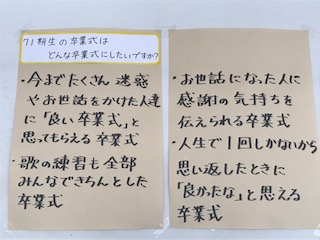 71期生の卒業式は
どんな卒業式にしたいですか?
・今までたくさん迷惑
やお世話をかけた人達
に「良い卒業式」と
思ってもらえる卒業式
・歌の練習も全部
みんなできちんとした
卒業式
・お世話になった人に
感謝の気持ちを
伝えられる卒業式
・人生で1回しかないから
思い返したときに
「良かったな」と思える
卒業式